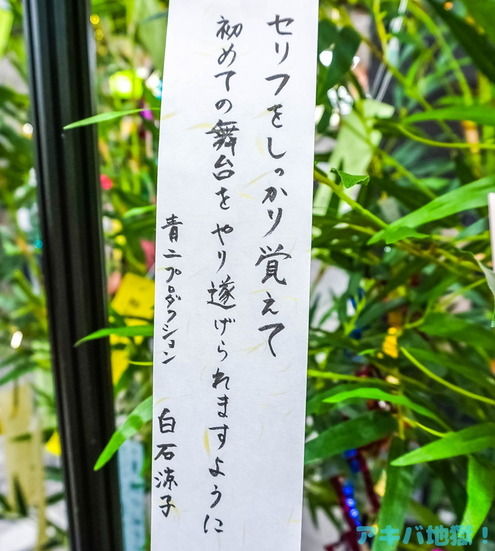 セリフをしっかり覚えて
初めての舞台をやり遂げられますように
青二プロダクション 白石涼子
アキバ地獄！